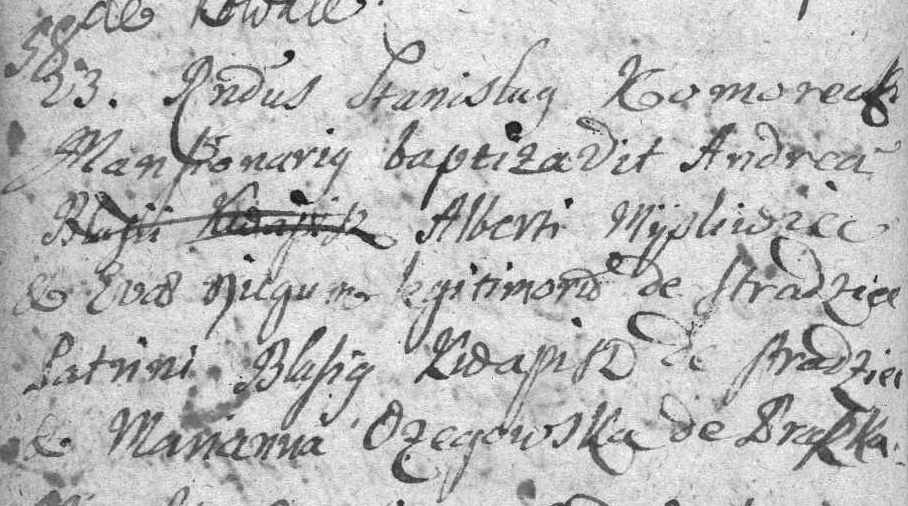 de Kowale.
58
23. Rndus Stanislaus Komorecki
Mansionarius baptizavit Andreā
Blasii Kwapisz Alberti Mysliwiec
& Evæ legitimorū de Stradziec
Patrini Blasius Kwapisz de Stradziec
& Marianna Ozegowska de Praszka.